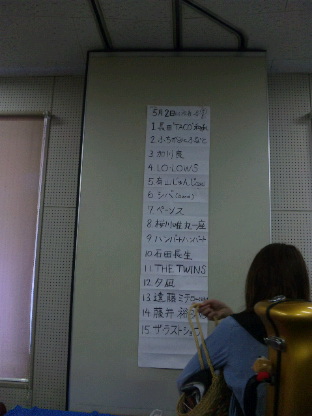 5月2日
1 長田"TACO"和承
2 ふちがみとふなと
3 加川良
4 LO-LOWS
5 有山じゅんじ
6 シバ
7 ペーソス
8 桜川唯丸一座
9 ハンバートハンバート
10 石田長生
11 THE TWINS
12 夕凪
13 遠藤ミチロー
14 藤井裕
15 ザ ラストショー